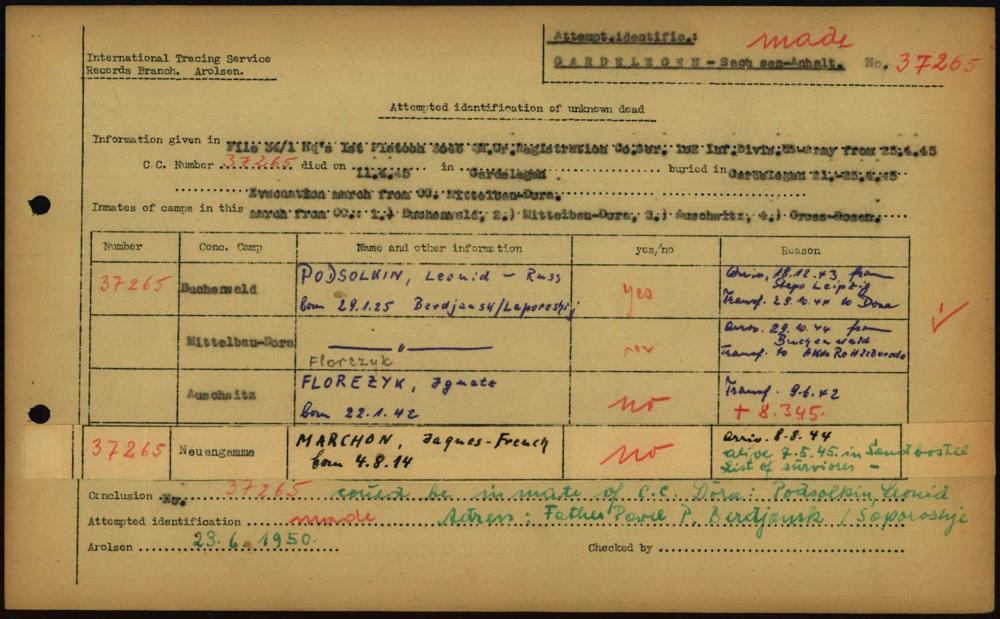 International Tracing Service
Records Branch. Arolsen.
Attempt.identific.: made
GARDELEGEN - Sachsen-Anhalt. No. 37265
Attempted identification of unknown dead
Information given in File 54/1 Hq's 1st Platoon Registration 1st Inf.Divis.US-Army from 25.4.45
C.C. Number 37265 died on 11.4.45 in Gardelegen buried in Gardelegen 21.-25.4.45
Evacuation march from CC. Mittelbau-Dora.
Inmates of camps in this march from CC.: 1.) Buchenwald, 2.) Mittelbau-Dora, 3.) Auschwitz, 4.) Gross-Rosen.
Number Conc. Camp Name and other information yes/no Reason
37265 Buchenwald PODSOLKIN, Leonid - Russ yes arriv. 18.12.43 from
Stapo Leipzig
born 29.1.25 Berdjansk/Saporoshij Transf. 29.10.44 to Dora
Mittelbau-Dora " yes arriv. 29.10.44 from
Buchenwald
Transf. to
Florczyk
Auschwitz FLOREZYK, Ignatz no Transf. 9.6.42
born 22.1.42 + 8.345.
37265 Neuengamme MARCHON, Jaques-French no arriv. 8.8.44
born 4.8.14 alive 7.5.45. in Sandbostel
List of surviores -
Conclusion No. 37265 could be inmate of C.C. Dora: Podsolkin, Leonid
Attempted identification made Adress: Father Pavel P. Berdjansk / Saporoshje
Arolsen 23.6.1950. Checked by